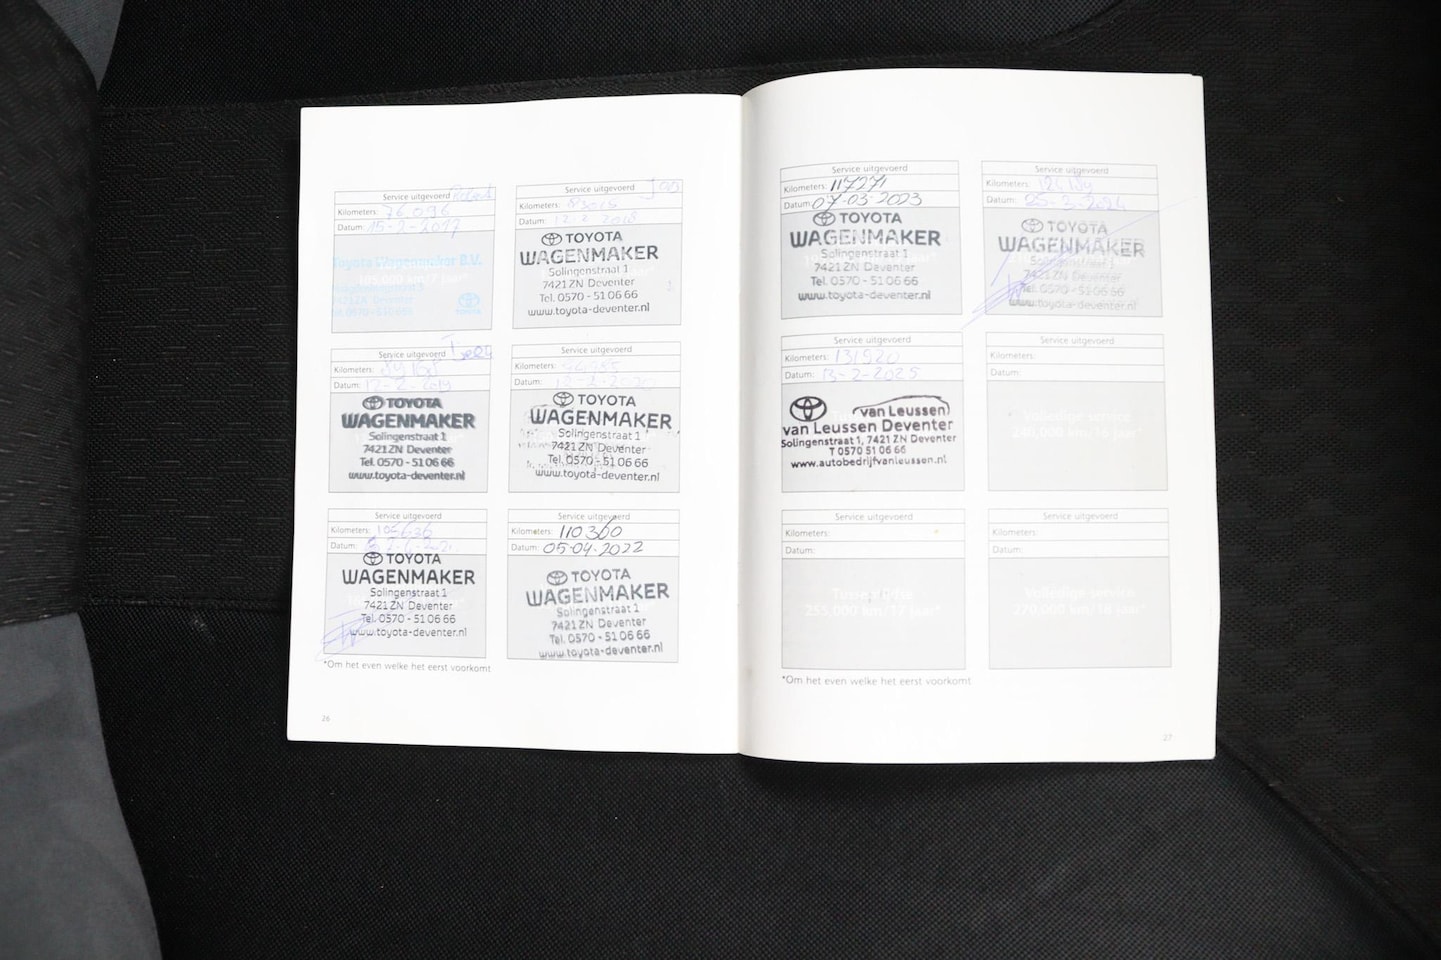 Service uitgevoerd
Kilometers: 76 096
Datum: 15-2-2017
Toyota Wagenmaker B.V.
7421 ZN Deventer
Tel. 0570 - 510666
TOYOTA
Service uitgevoerd
Kilometers: 83015
Datum: 12-2 2018
TOYOTA
WAGENMAKER
Solingenstraat 1
7421 ZN Deventer
Tel. 0570 - 51 06 66
www.toyota-deventer.nl
Service uitgevoerd
Kilometers:
Datum: 12-2-2019
TOYOTA
WAGENMAKER
Solingenstraat 1
7421 ZN Deventer
Tel. 0570 - 51 06 66
www.toyota-deventer.nl
Service uitgevoerd
Kilometers:
Datum:
TOYOTA
WAGENMAKER
Solingenstraat 1
7421 ZN Deventer
Tel. 0570 - 51 06 66
www.toyota-deventer.nl
Service uitgevoerd
Kilometers:
Datum:
TOYOTA
WAGENMAKER
Solingenstraat 1
7421 ZN Deventer
Tel. 0570 - 51 06 66
www.toyota-deventer.nl
Service uitgevoerd
Kilometers: 110 360
Datum: 05-04-2022
TOYOTA
WAGENMAKER
Solingenstraat 1
7421 ZN Deventer
Tel. 0570 - 51 06 66
www.toyota-deventer.nl
*Om het even welke het eerst voorkomt
26
Service uitgevoerd
Kilometers: 117271
Datum: 07-03-2023
TOYOTA
WAGENMAKER
Solingenstraat 1
7421 ZN Deventer
Tel. 0570 - 51 06 66
www.toyota-deventer.nl
Service uitgevoerd
Kilometers:
Datum: 25-3-2024
TOYOTA
WAGENMAKER
Solingenstraat 1
7421 ZN Deventer
Tel. 0570 - 51 06 66
www.toyota-deventer.nl
Service uitgevoerd
Kilometers: 131920
Datum: 13-2-2025
van Leussen
van Leussen Deventer
Solingenstraat 1, 7421 ZN Deventer
T 0570 51 06 66
www.autobedrijfvanleussen.nl
Service uitgevoerd
Kilometers:
Datum:
Volledige service
240,000 km/16 jaar*
Service uitgevoerd
Kilometers:
Datum:
Tussentijdse
255,000 km/17 jaar*
Service uitgevoerd
Kilometers:
Datum:
Volledige service
270,000 km/18 jaar*
*Om het even welke het eerst voorkomt
27